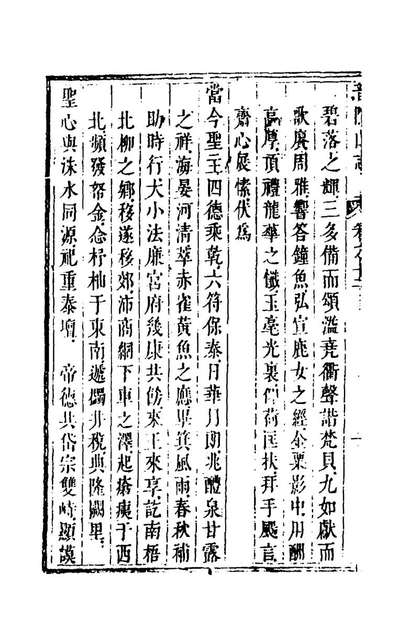 碧落之耀三多備而頌濫堯衢聲諧梵貝九如獻而
歌賡周雅響答鐘魚弘宣鹿女之經金粟影中用酬
高厚頂禮龍華之懺玉毫光裏仰荷匡扶拜手颺言
齋心展愫伏爲
當今聖主四德乘乾六符保泰日華月朗兆醴泉甘露
之祥海晏河清萃赤雀黃魚之應畢箕風雨春秋補
助時行大小法廉官府綏康共傍來王來享訖南梧
北柳之鄉移遂移郊沛商網下車之澤起瘡痍于西
北頻發帑金念杼柚于東南遞蠲井稅典隆闕里
聖心與洙水同源祀重泰壇 帝德共岱宗雙峙顯謨